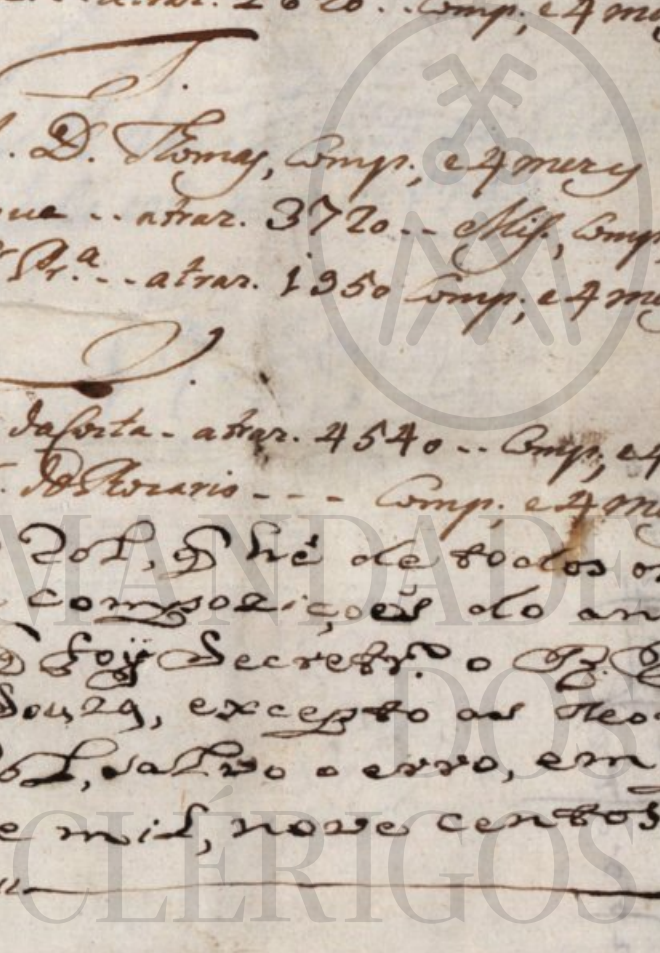 atraz. 2820.. Comp., e 4 me
D. Thomas, Comp., e 4 merz
que .. atraz. 3720 .. Miss., Comp
Pr.ª .. atraz. 1950 Comp., e 4 me
da Costa - atraz. 4540 .. Comp., e 4
do Rozario - - - Comp., e 4 m
Rol, q hé de todos os
compoziçoẽs do an
q foy Secretr.º o
Souza, excepto as
Rol, salvo o erro, em
e mil, nove centos
MANDADE
DOS
CLÉRIGOS